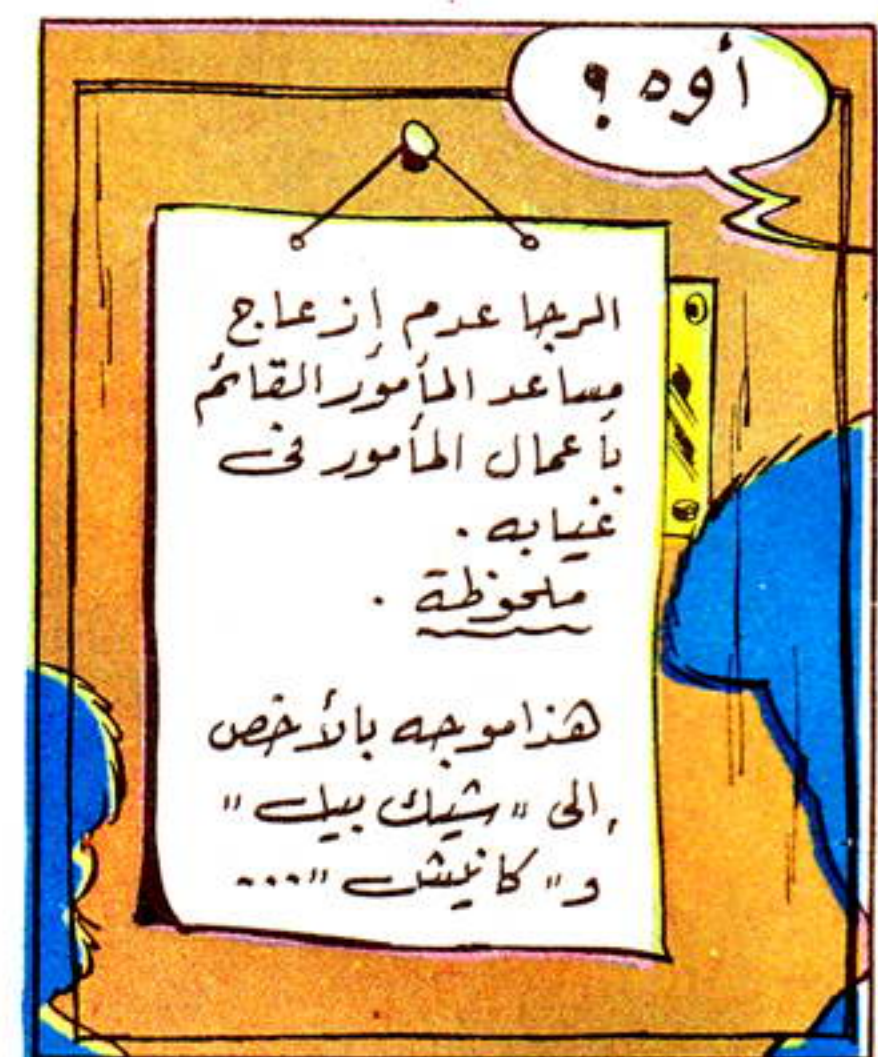 أوه ؟
الرجا عدم إزعاج
مساعد المأمور القائم
بأعمال المأمور فى
غيابه .
ملحوظة .
هذا موجه بالأخص
إلى " شيك بيل "
و " كانيش " ...